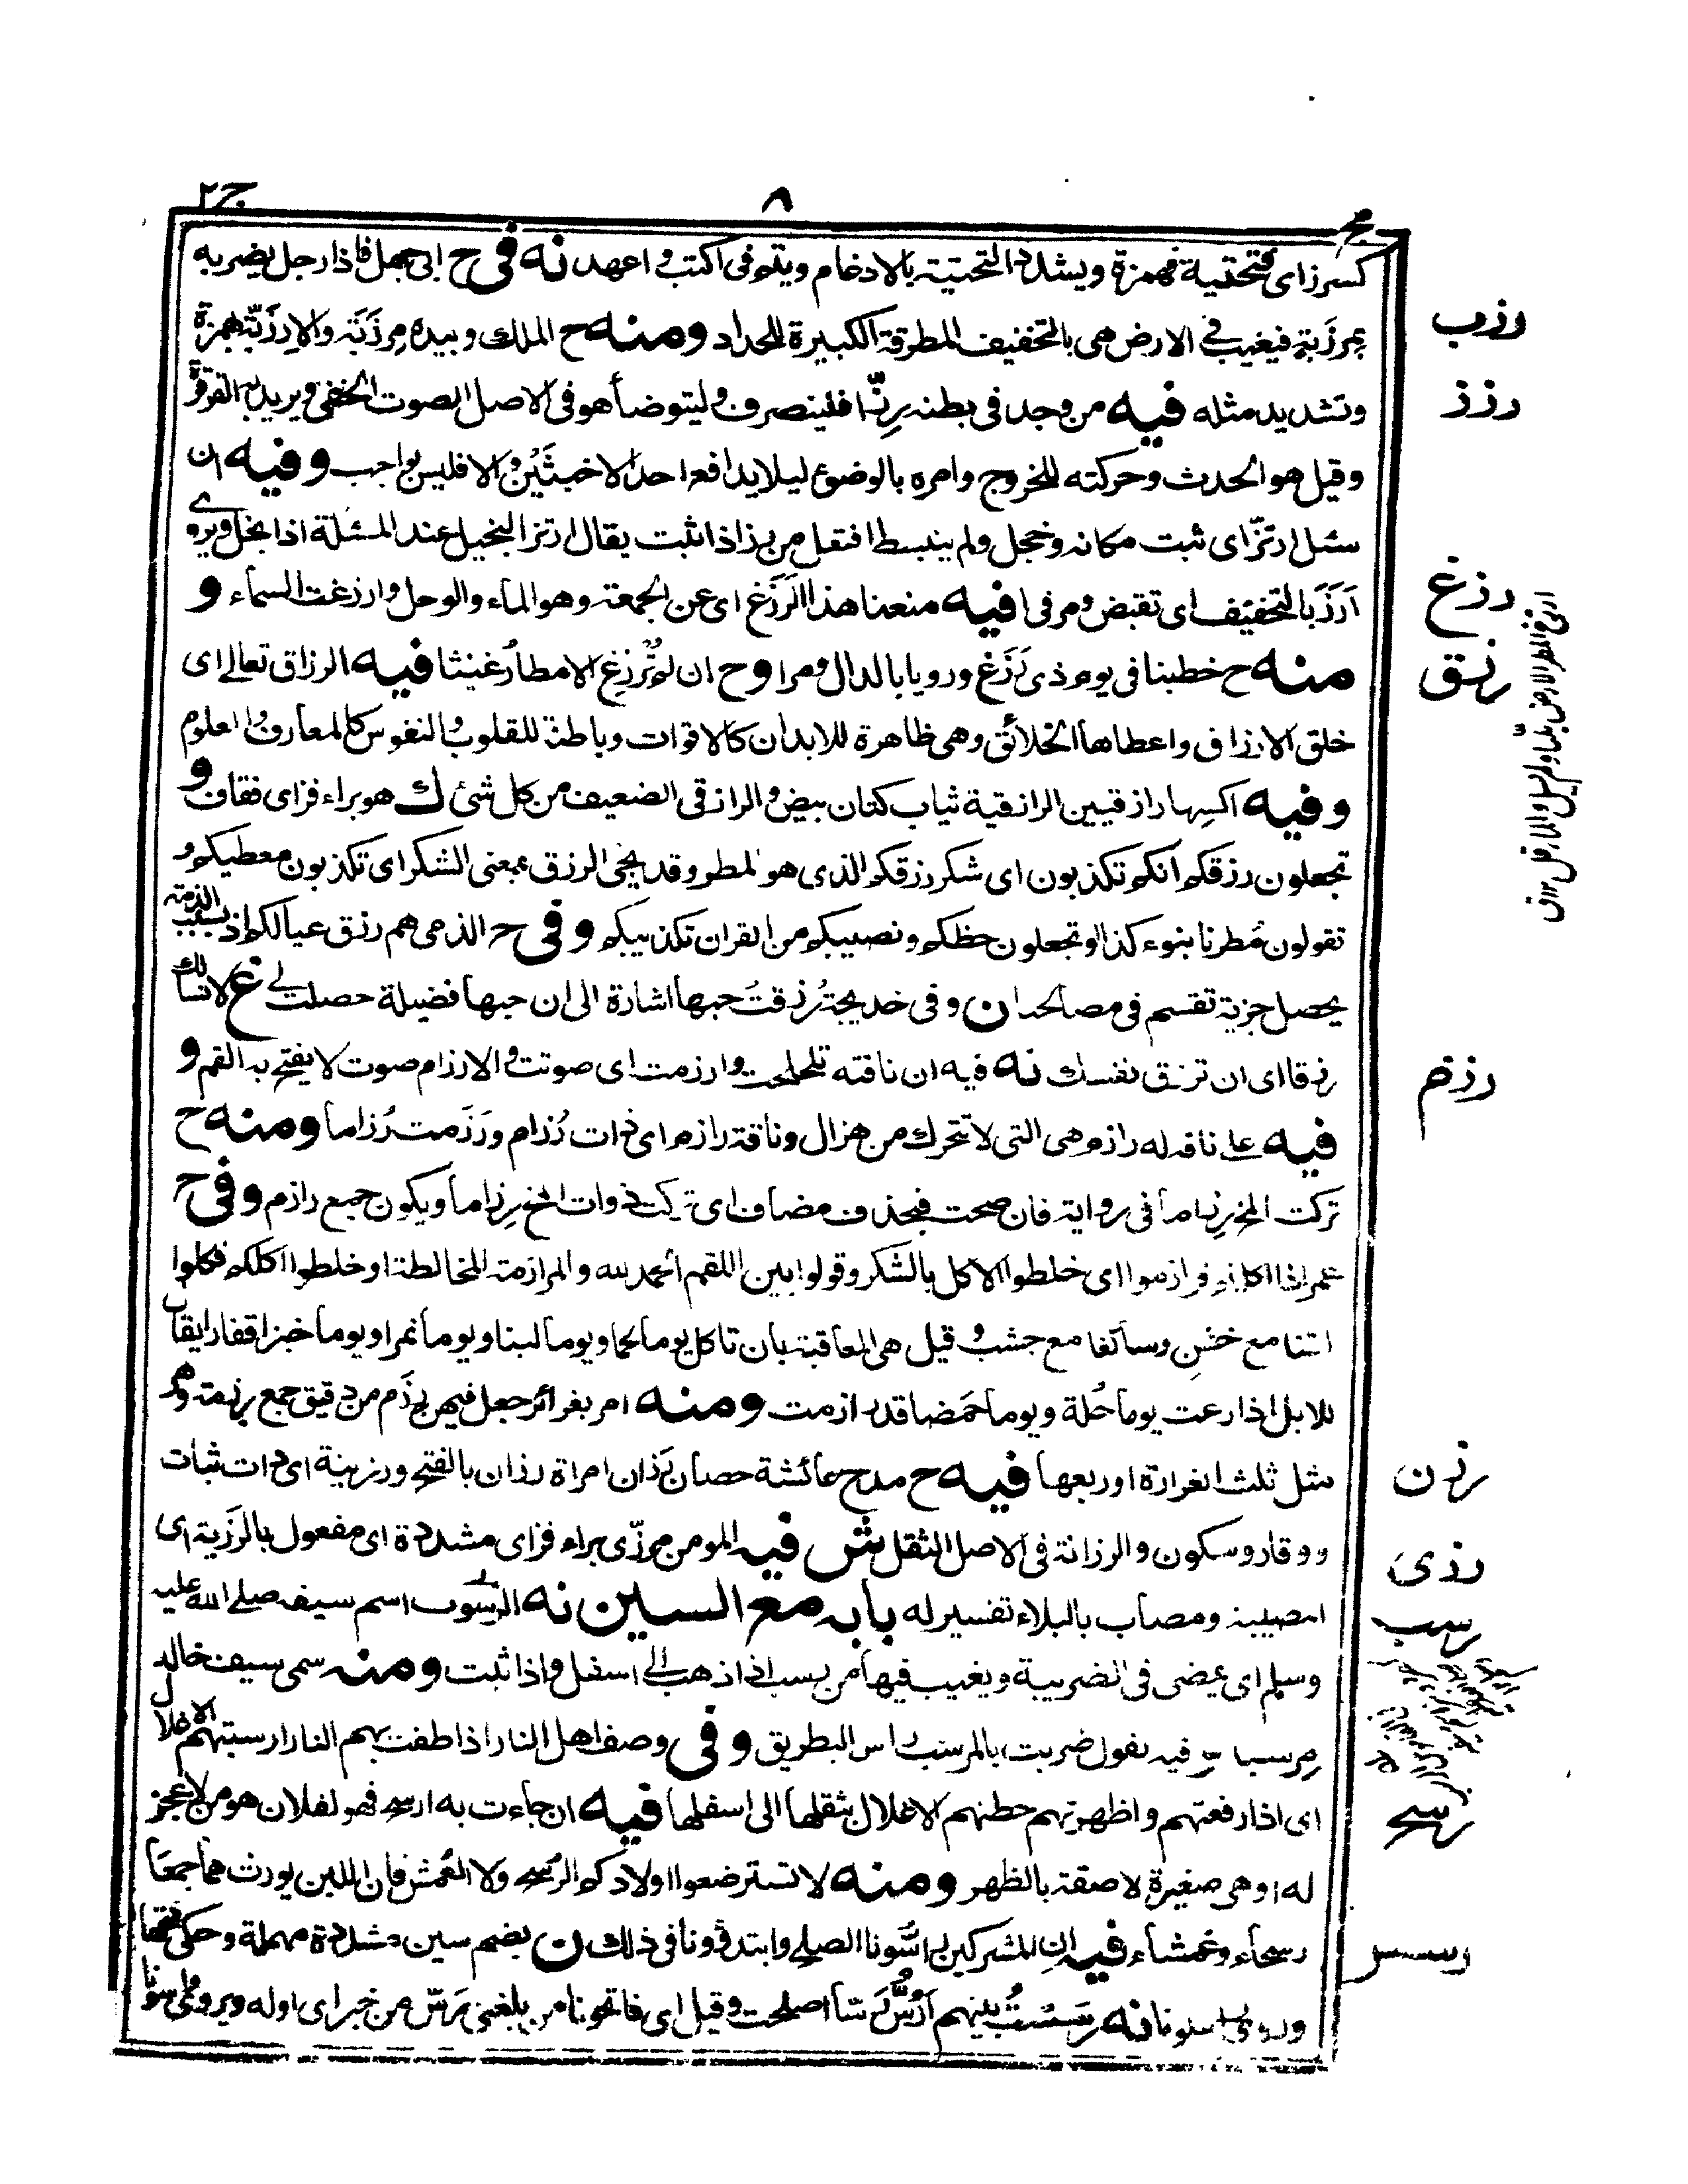 ج٢
٨
كسر زاى فتحتية فهمزة ويشدد التحتية بالادغام ويتم فى اكتب و اعهد نه فى ح ابى جهل فاذا رجل يضربه
بمرزَبة فيغيب فى الارض هى بالتخفيف المطرقة الكبيرة للحداد ومنه ح الملك وبيده مِرزَبَة والاِرزَبّة بهمزة
وتشديد مثله فيه من وجد فى بطنه رِزّا فلينصرف وليتوضأ هو فى الاصل الصوت الخفى ويريد به القرقرة
وقيل هو الحدث وحركته للخروج وامره بالوضوء ليلا يدافع احد الاخبثَين والا فليس بواجب وفيه ان
سئل ارتزّ اى ثبت مكانه وخجل ولم ينبسط افتعل من رز اذا ثبت يقال ارتز البخيل عند المسئلة اذا بخل ويروى
اَرَزَ بالتخفيف اى تقبض ومر فى ا فيه منعنا هذا الرَزَغ اى عن الجمعة وهو الماء والوحل وارزغت السماء و
منه ح خطبنا فى يوم ذى رَزَغ ورويا بالدال ومرا وح ان لم تُرزِغ الامطارُ غيثا فيه الرزاق تعالے اى
خلق الارزاق واعطاها الخلائق وهى ظاهرة للابدان كالاقوات وباطنة للقلوب والنفوس كالمعارف والعلوم
وفيه اكسِها رازقيين الرازقية ثياب كتان بيض والرازقى الضعيف من كل شئ ك هو براء فزاى فقاف و
تجعلون رزقكم انكم تكذبون اى شكر رزقكم الذى هو المطر وقد يجئ الرزق بمعنى الشكر اى تكذبون معطيكم و
تقولون مُطرنا بنوء كذا او تجعلون حظكم ونصيبكم من القران تكذيبكم وفى ح الذمى هم رزق عيالكم اذ بسبب الذمة
يحصل جزية تقسم فى مصالحه ن وفى خديجة رُزقتُ حبها اشارة الى ان حبها فضيلة حصلت لے غ لا نسألك
رزقا اى ان ترزق نفسك نه فيه ان ناقته تلحلحت وارزمت اى صوتت والارزام صوت لا يفتح به الفم و
فيه على ناقه له رازم هى التى لا تتحرك من هزال وناقة رازم اى ذات رُزام ورَزَمت رُزاما ومنه ح
تركت المخ رِزاما فى رواية فان صحت فبحذف مضاف اى تركت ذوات المخ رِزاما ويكون جمع رازم وفى ح
عمر اذا اكلتم فرازموا اى خلطوا الاكل بالشكر وقولوا بين اللقم الحمد لله والمرازمة المخالطة او خلطوا اكلكم فكلوا
لينا مع خشِن وسائغا مع جشب وقيل هى المعاقبة بان تاكل يوما لحما ويوما لبنا ويوما تمرا ويوما خبزا قفارا يقال
للابل اذا رعت يوما خُلة ويوما حَمضا قد رازمت ومنه امر بغرائر جعل فيهن رِزَم من دقيق جمع رزمة وهى
مثل ثلث الغرارة او ربعها فيه ح مدح عائشة حصان رَزان امراة رزان بالفتح ورزينة اى ذات ثبات
ووقار وسكون والرزانة فى الاصل الثقل ش فيه المومن مرزّى براء فزاى مشددة اى مفعول بالرَزية اى
المصيبة ومصاب بالبلاء تفسير له بابه مع السين نه الرسوب اسم سيفه صلے الله عليه
وسلم اى يمضى فى الضريبة ويغيب فيها من رسب اذا ذهب الے اسفل واذا ثبت ومنه سمى سيف خالد
مِرسبا فيه يقول ضربت بالمرسب راس البطريق وفى وصف اهل النار اذا طفت بهم النار ارسبتهم الاغلال
اى اذا رفعتهم واظهرتهم حطتهم الاغلال بثقلها الى اسفلها فيه ان جاءت به ارسح فهو لفلان هو من لا عجز
له او هى صغيرة لاصقة بالظهر ومنه لا تسترضعوا اولادكم الرُسح ولا العُمش فان اللبن يورث هما جمعا
رسحاء وعمشاء فيه ان المشركين راسُّونا الصلح وابتدؤنا فى ذلك ن بضم سين مشددة مهملة وحكى فتحها
وروى راسلونا نه رَسَستُ بينهم اَرُسُّ رَسّا اصلحت وقيل اى فاتحونا من بلغنى رَسّ من خبر اى اوله ويروى
رزب
رزز
رزغ
رزق
رزم
رزن
رزى
رسب
رسح
رسس